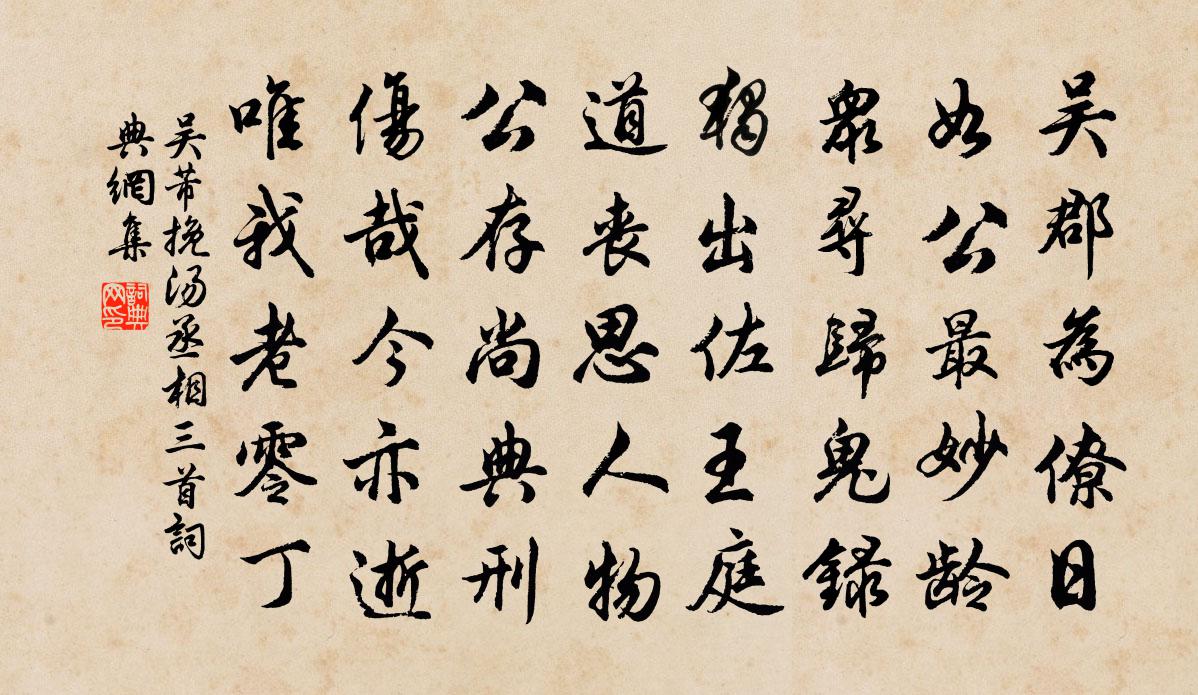 吴郡為僚日
如公最妙齡
眾尋歸鬼錄
獨出佐王庭
道丧思人物
公存尚典刑
傷哉今亦逝
唯我老零丁
吴芾挽汤丞相三首詞
典網集
詞典网印